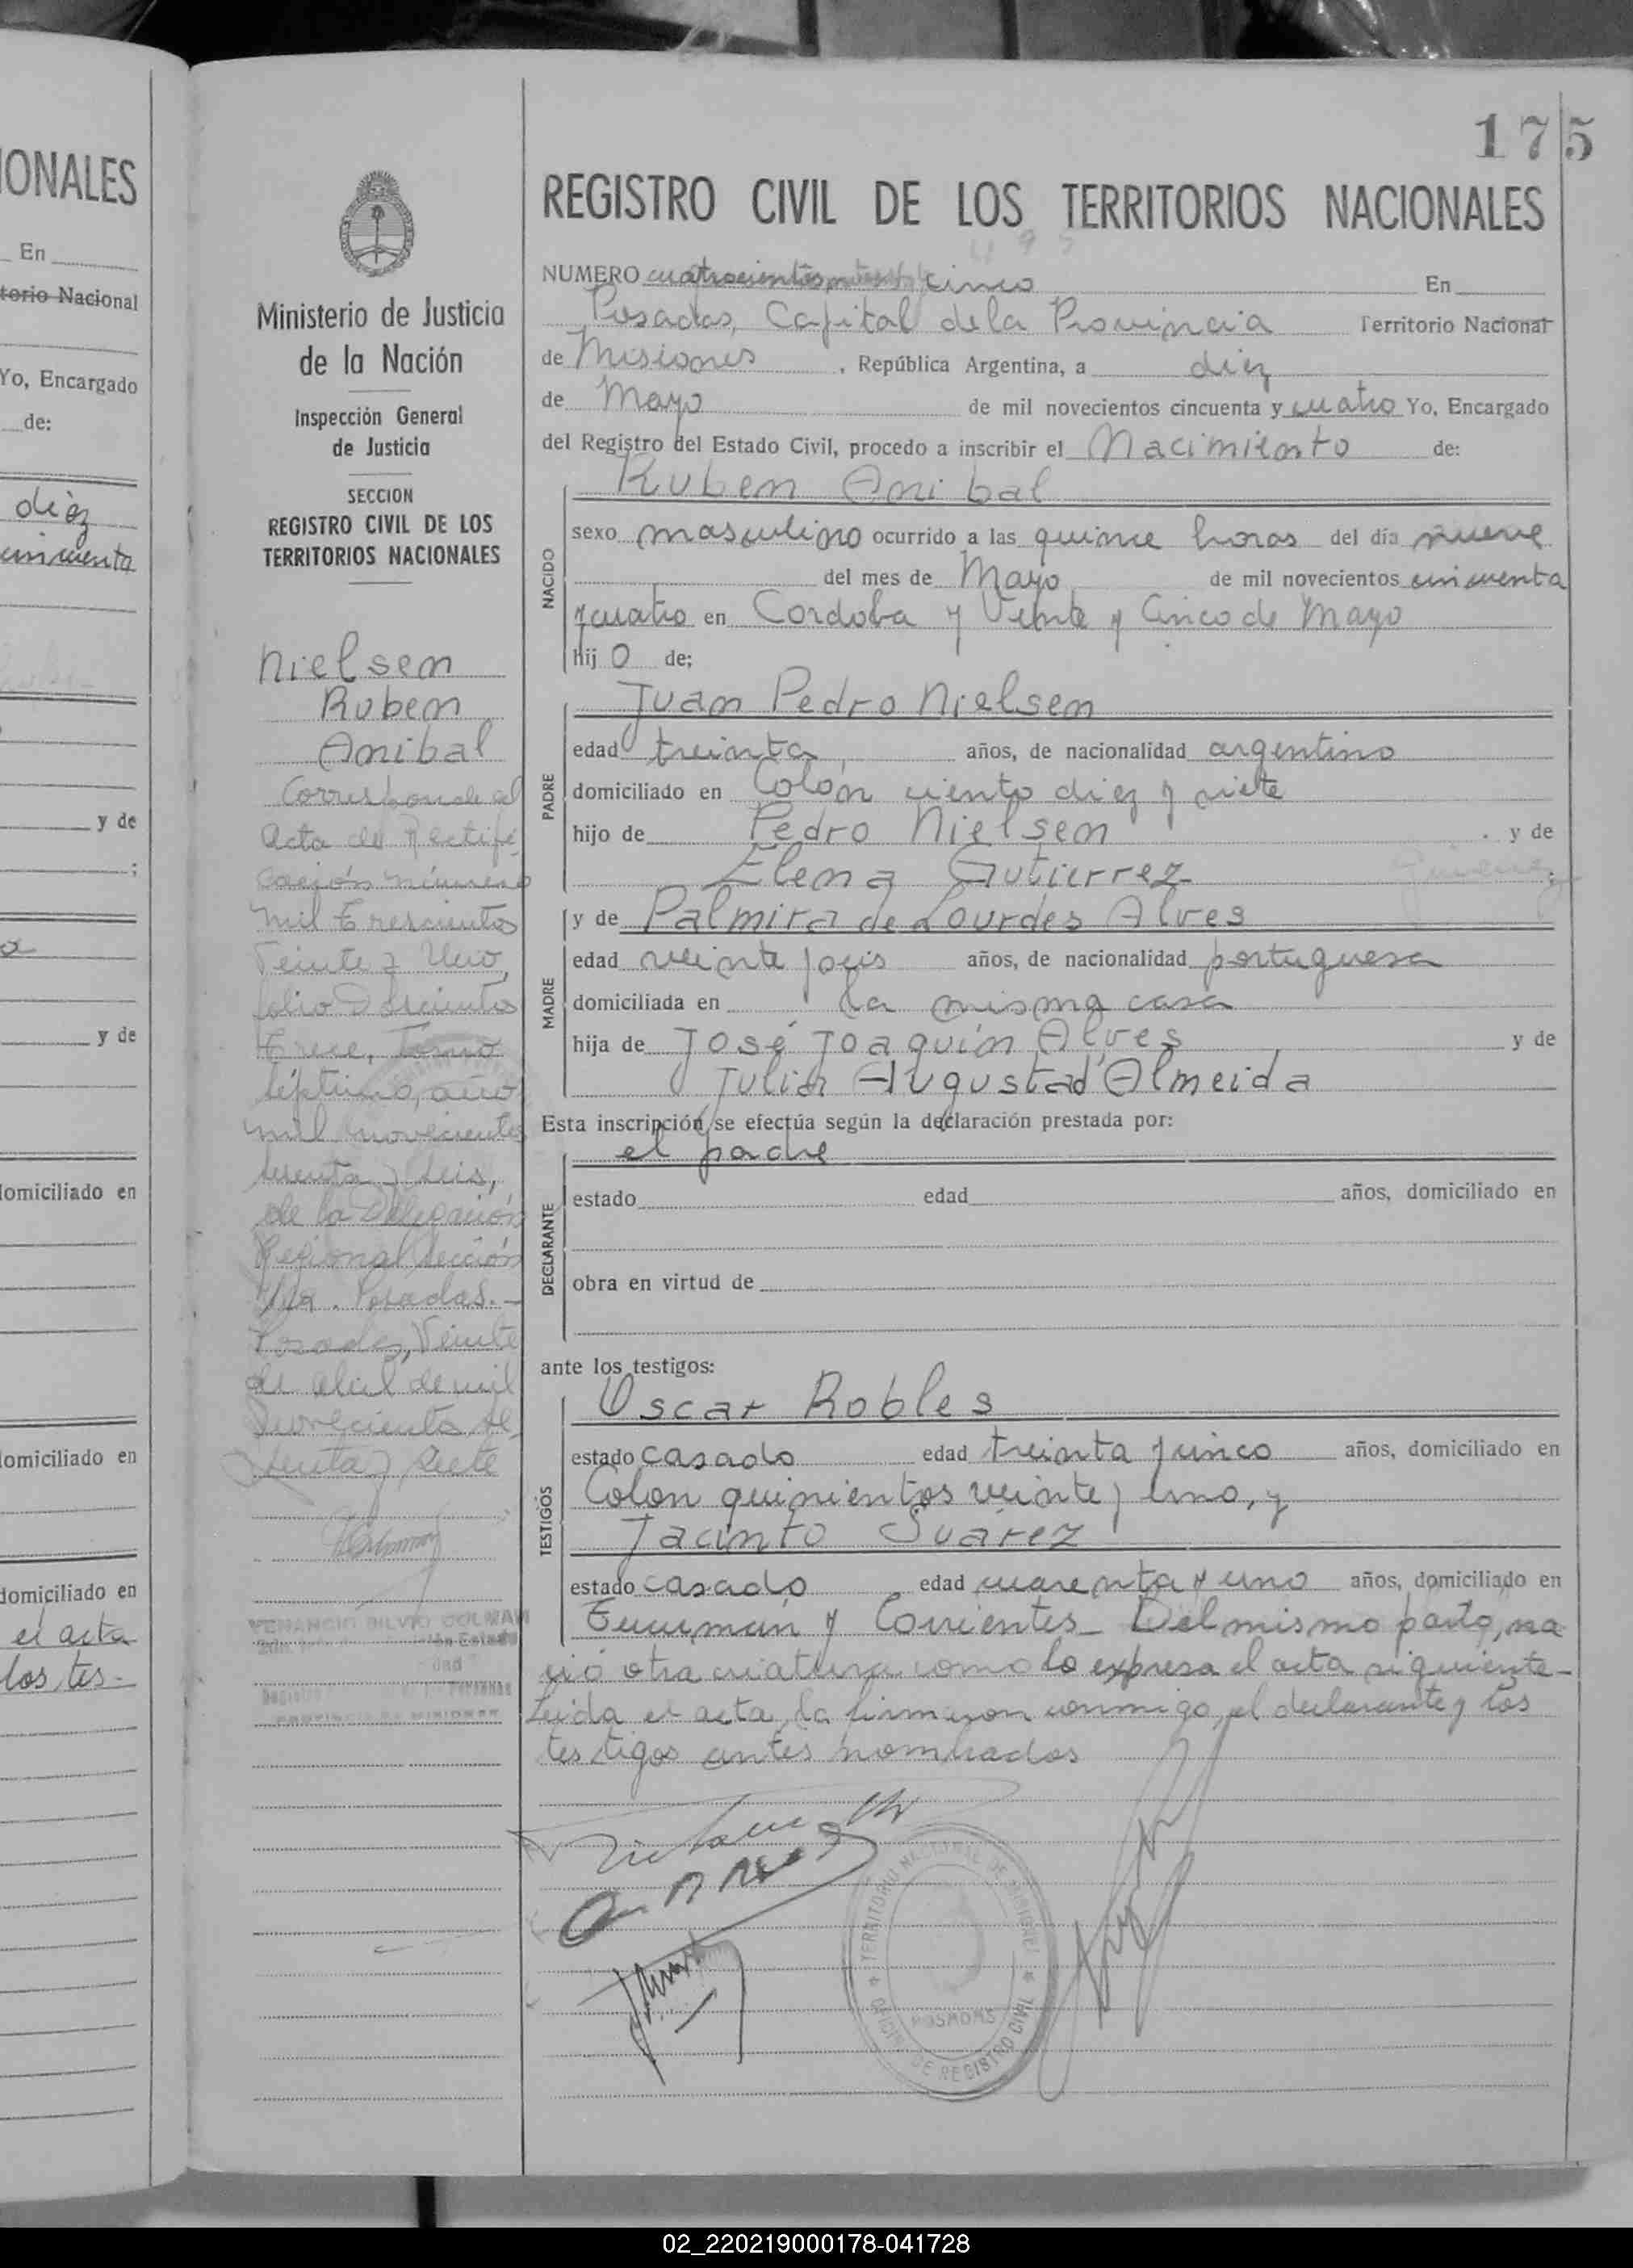 IONALES
En
torio Nacional
Yo, Encargado
de:
diez
cincuenta
y de
;
a
y de
domiciliado en
domiciliado en
domiciliado en
el acta
los tes-
Ministerio de Justicia
de la Nación
Inspección General
de Justicia
SECCION
REGISTRO CIVIL DE LOS
TERRITORIOS NACIONALES
Nielsen
Ruben
Anibal
Corresponde al
Acta de Rectifi
cación número
mil trescientos
Veinte y Uno,
folio Doscientos
trece, Tomo
séptimo, año
mil novecientos
setenta y seis,
de la Delegación
Regional Sección
1ra. Posadas.-
Posadas, Veinte
de abril de mil
novecientos se
tenta y siete
VENANCIO SILVIO COLMAN
175
REGISTRO CIVIL DE LOS TERRITORIOS NACIONALES
NUMERO cuatrocientos cinco En
Posadas, Capital de la Provincia Territorio Nacional
de Misiones, República Argentina, a diez
de Mayo de mil novecientos cincuenta y cuatro Yo, Encargado
del Registro del Estado Civil, procedo a inscribir el Nacimiento de:
Ruben Anibal
NACIDO
sexo masculino ocurrido a las quince horas del día nueve
del mes de Mayo de mil novecientos cincuenta
y cuatro en Cordoba y Veinte y Cinco de Mayo
hij o de;
Juan Pedro Nielsen
PADRE
edad treinta años, de nacionalidad argentino
domiciliado en Colón ciento diez y siete
hijo de Pedro Nielsen y de
Elena Gutierrez
y de Palmira de Lourdes Alves
MADRE
edad veinte y seis años, de nacionalidad portuguesa
domiciliada en la misma casa
hija de José Joaquín Alves y de
Julia Augusta d'Almeida
Esta inscripción se efectúa según la declaración prestada por:
el padre
DECLARANTE
estado edad años, domiciliado en
obra en virtud de
ante los testigos:
Oscar Robles
TESTIGOS
estado casado edad treinta y cinco años, domiciliado en
Colon quinientos veinte y uno, y
Jacinto Suárez
estado casado edad cuarenta y uno años, domiciliado en
Tucumán y Corrientes_ Del mismo parto, na
ció otra criatura como lo expresa el acta siguiente-
Leida el acta, la firmaron conmigo, el declarante y los
testigos antes nombrados
TERRITORIO NACIONAL DE MISIONES
POSADAS
OFICINA DE REGISTRO CIVIL
02_220219000178-041728